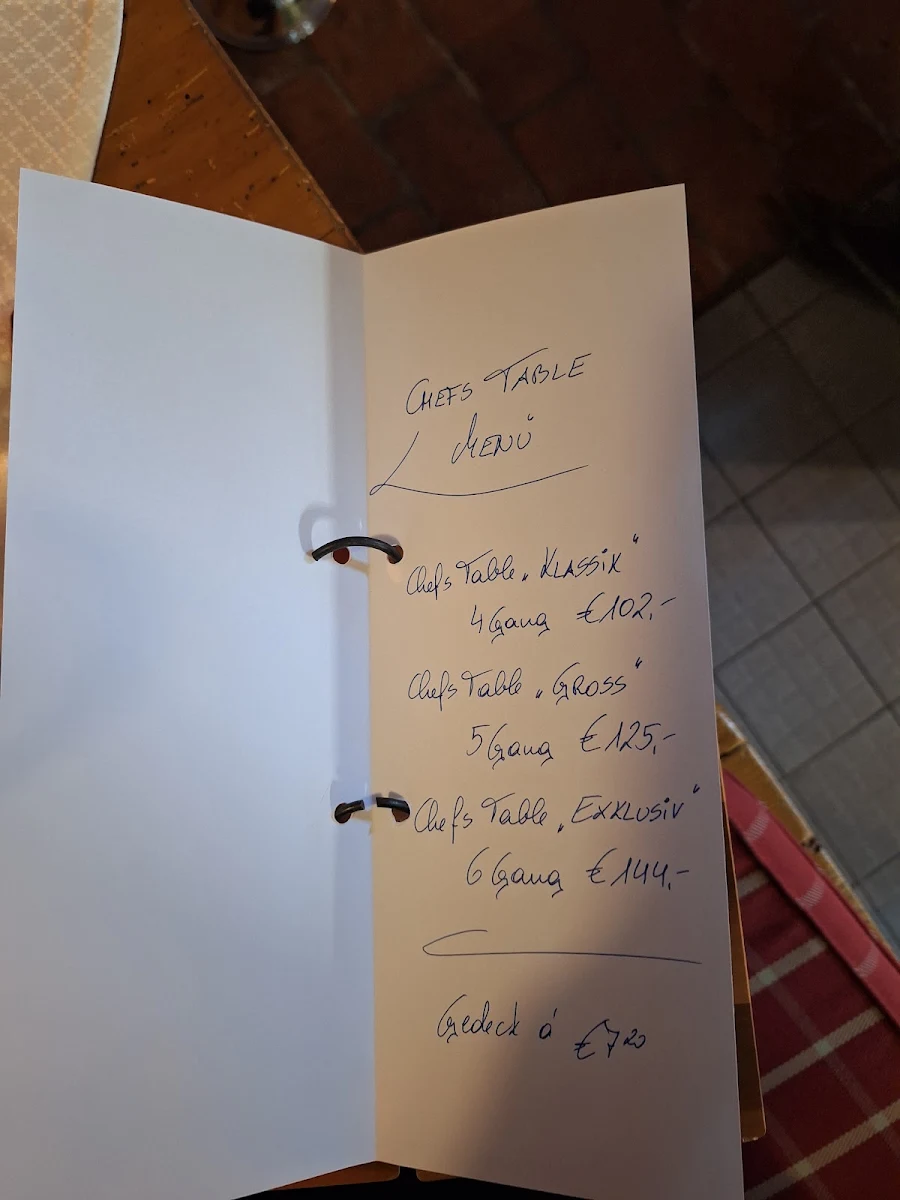 CHEFS TABLE
MENÜ
Chefs Table „KLASSIK“
4 Gang €102,-
Chefs Table „GROSS“
5 Gang €125,-
Chefs Table „EXKLUSIV“
6 Gang €144,-
Gedeck á €7 20